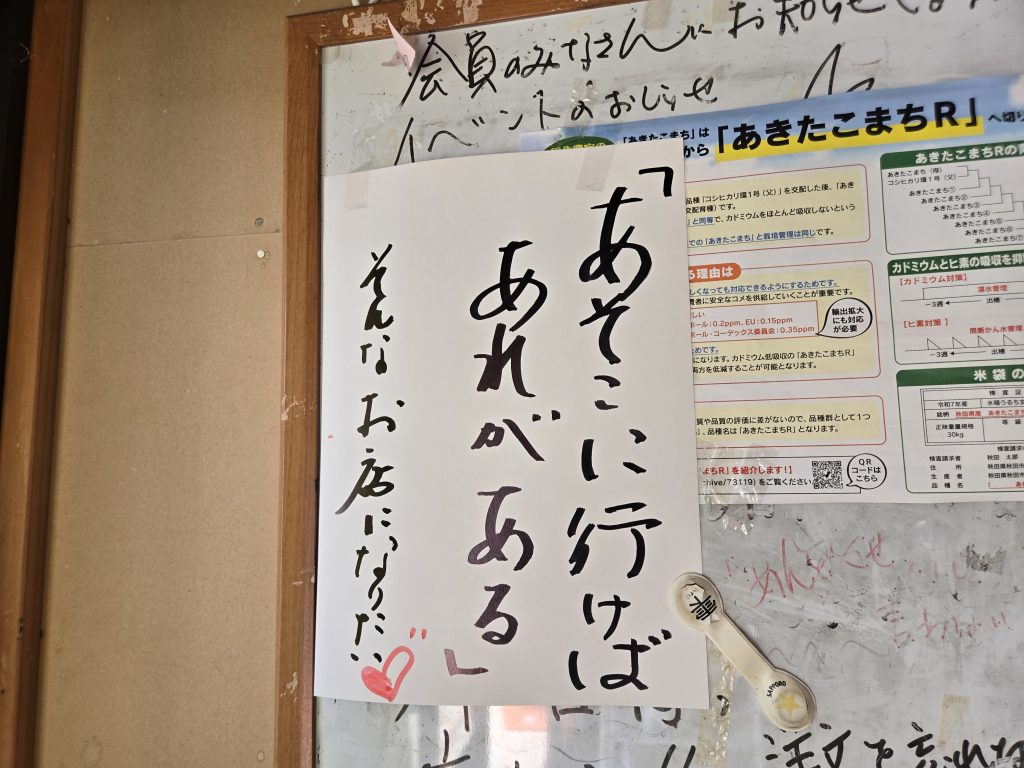 「あそこに行けば
あれがある」
そんなお店になりたい
会員のみなさんにお知らせ
イベントのおしらせ
「あきたこまち」は
から「あきたこまちR」へ切り
品種「コシヒカリ環1号(父)」を交配した後、「あき
交配育種)です。
と同等で、カドミウムをほとんど吸収しないという
での「あきたこまち」と栽培管理は同じです。
る理由は
しくなっても対応できるようにするためです。
費者に安全なコメを供給していくことが重要です。
しい
ポール:0.2ppm、EU:0.15ppm
ポール・コーデックス委員会:0.35ppm
輸出拡大
にも対応
が必要
めです。
になります。カドミウム低吸収の「あきたこまちR」
両方を低減することが可能となります。
質や品質の評価に差がないので、品種群として1つ
、品種名は「あきたこまちR」となります。
まちR」を紹介します!】
hive/73119)をご覧ください
QR
コードは
こちら
あきたこまちRの育
あきたこまち(母)
コシヒカリ環1号(父)
あきたこまち①
あきたこまち②
あきたこまち③
あきたこまち④
あきたこまち⑤
あきたこまち⑥
あきたこまち⑦
カドミウムとヒ素の吸収を抑
【カドミウム対策】
湛水管理
-3週
出穂
【ヒ素対策】
間断かん水管理
-3週
出穂
米袋の
検査証
令和7年産
水稲うるち
銘柄
秋田県産
あきたこま
正味重量規格
30kg
等級
検査請求者
検査請求者
秋田 太郎
住所
秋田県秋田市
生産者
秋田県秋田
品種名
めんどくせ
SAPPORO
注文を忘れな